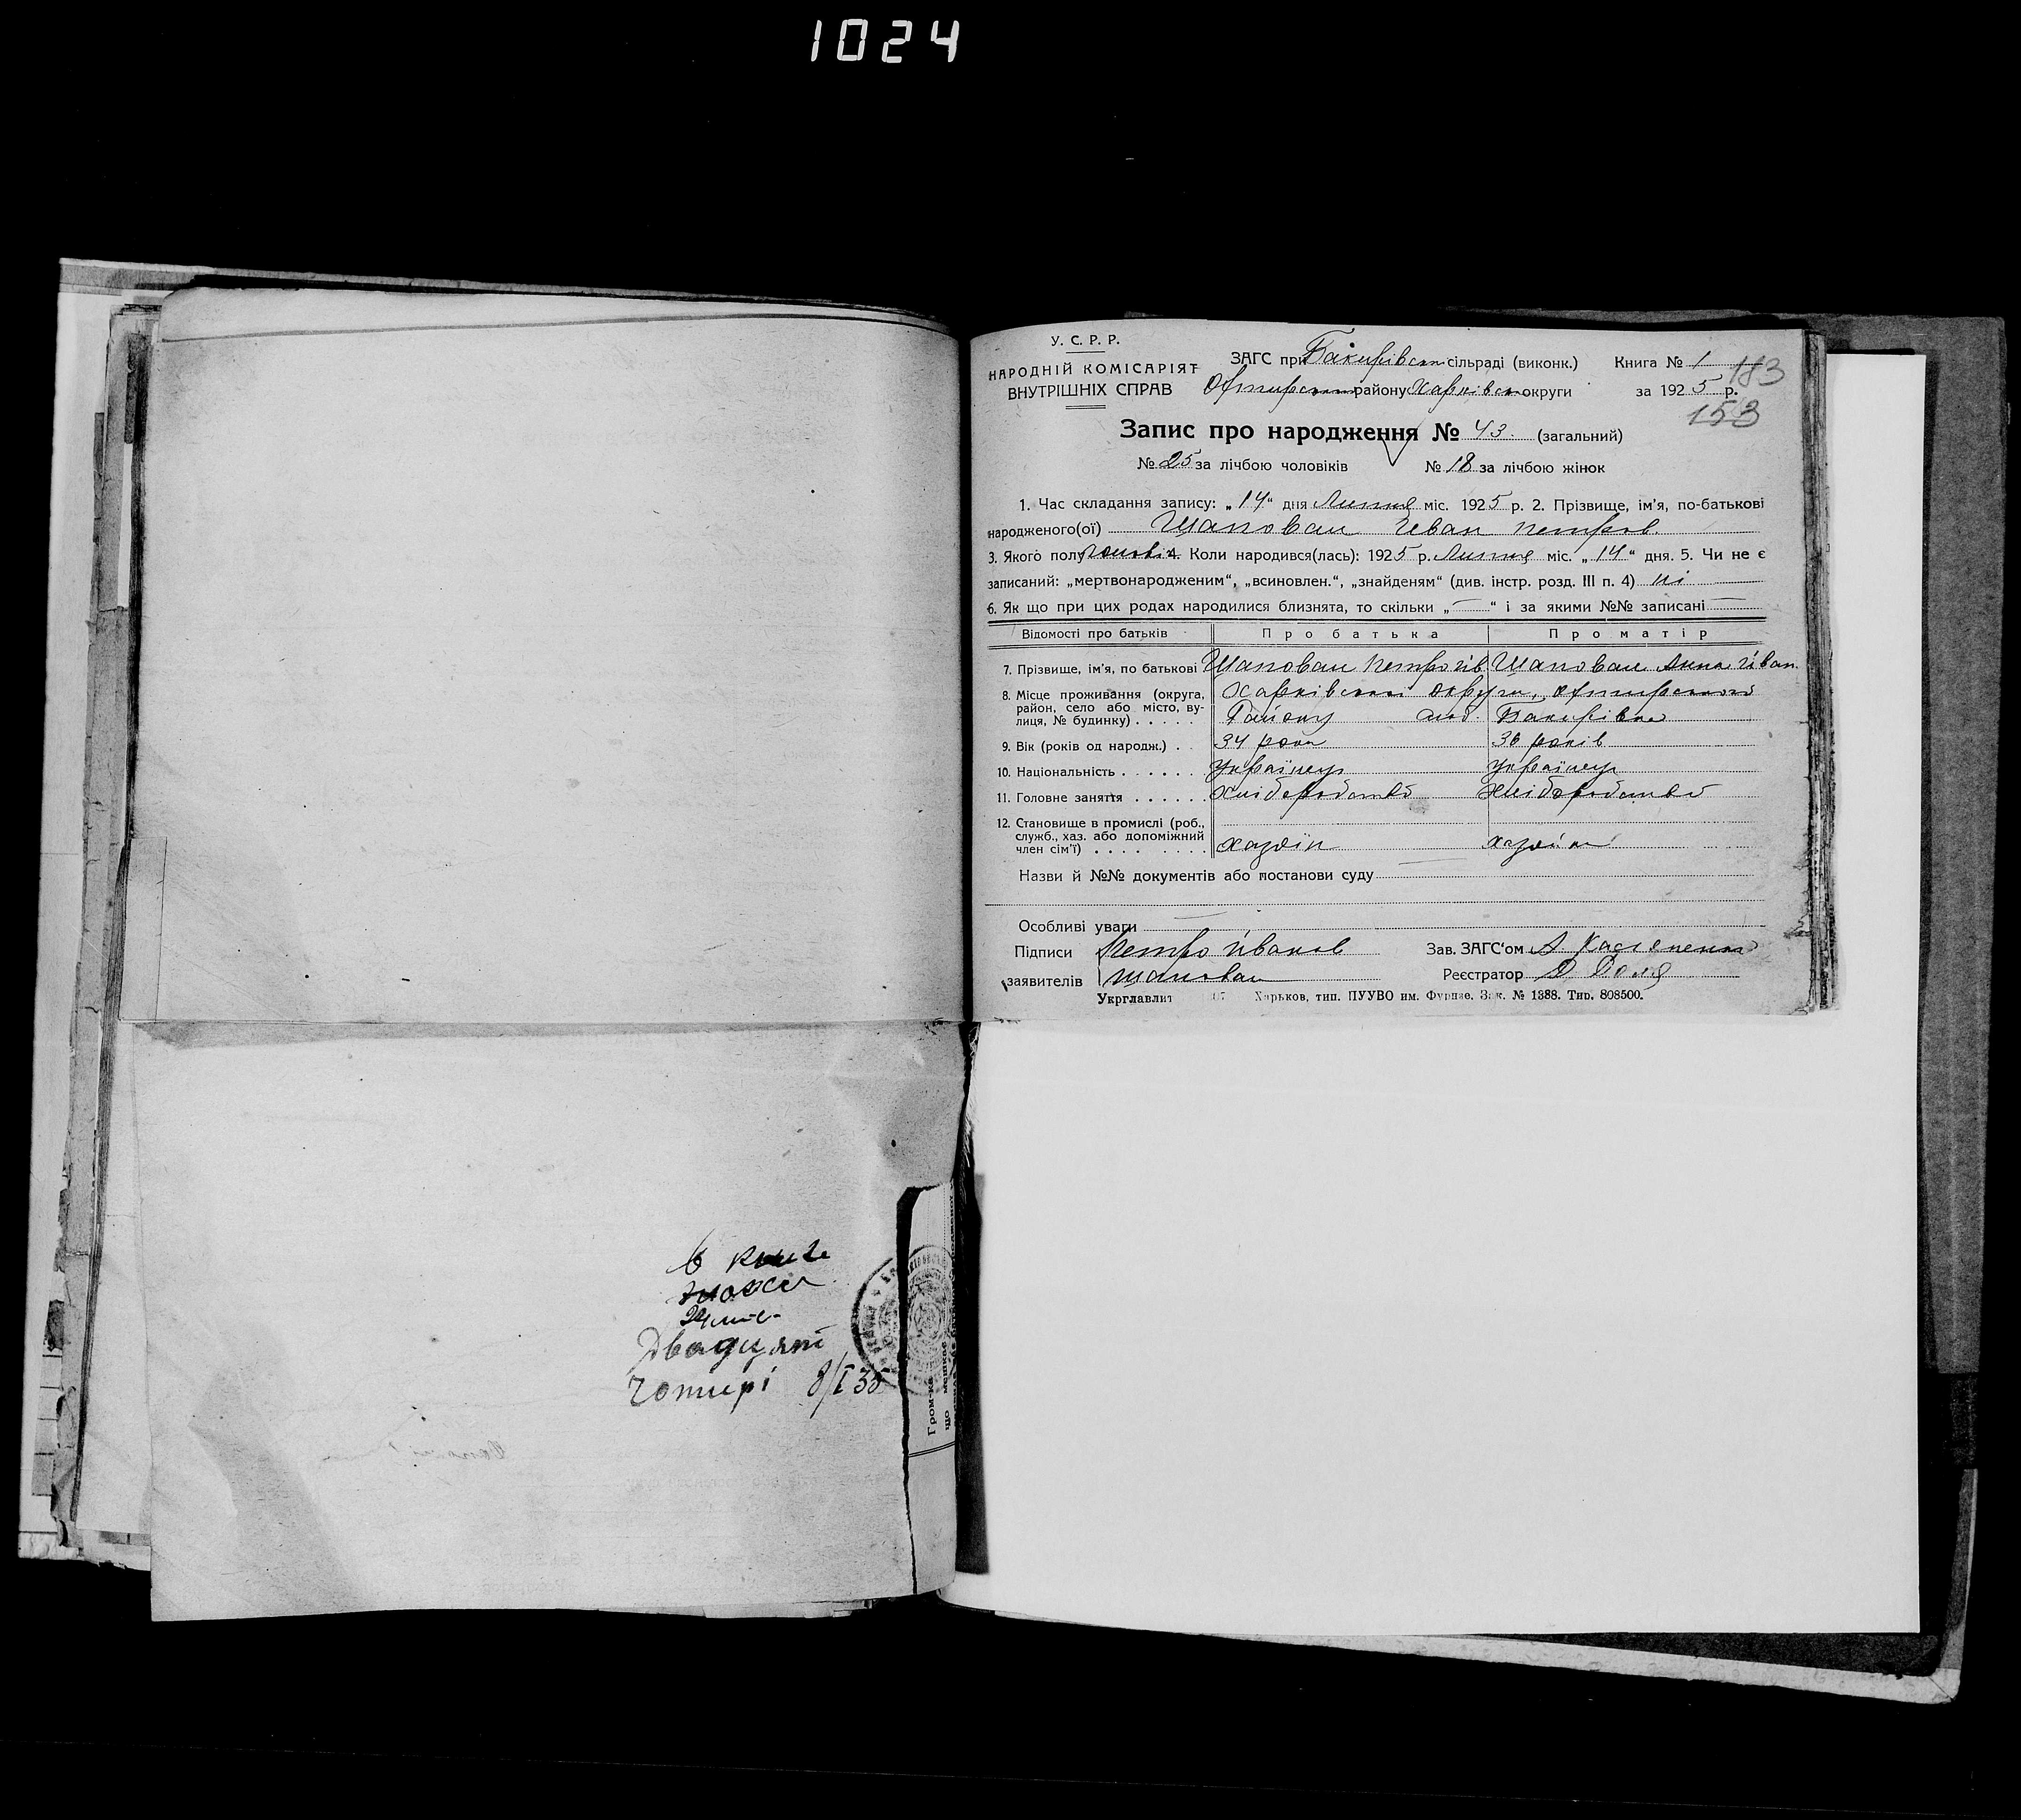 1024
У. С. Р. Р.
НАРОДНІЙ КОМІСАРІЯТ
ВНУТРІШНІХ СПРАВ
ЗАГС при Бакирівськ сільраді (виконк.)
Охтирськ району Харківськ округи
Книга № 1
за 1925 р.
183
153
Запис про народження № 43. (загальний)
№ 25 за лічбою чоловіків № 18 за лічбою жінок
1. Час складання запису: „14“ дня Липня міс. 1925 р. 2. Прізвище, ім'я, по-батькові
народженого(ої) Шаповал Іван Петров.
3. Якого полу чоловік 4. Коли народився(лась): 1925 р. Липня міс. „14“ дня. 5. Чи не є
записаний: „мертвонародженим“, „всиновлен.“, „знайденям“ (див. інстр. розд. III п. 4) ні
6. Як що при цих родах народилися близнята, то скільки „—“ і за якими №№ записані —
Відомості про батьків Про батька Про матір
7. Прізвище, ім'я, по батькові Шаповал Петро Ів Шаповал Анна Іван.
8. Місце проживання (округа, район, село або місто, вулиця, № будинку) . . . . . Харківськи округи, Охтирського
Району Бакирівка
9. Вік (років од народж.) . . 34 роки 36 років
10. Національність . . . . . . Українец Українец
11. Головне заняття . . . . . . Хліборобство Хліборобство
12. Становище в промислі (роб.,
служб., хаз. або допоміжний
член сім'ї) . . . . . . . . хазяїн хазяїн
Назви й №№ документів або постанови суду
Особливі уваги
Підписи Петро Іванов
заявителів Шаповал
Зав. ЗАГС'ом А.
Реєстратор
Укрглавлит Харьков, тип. ПУУВО им. Фрунзе. Зак. № 1388. Тир. 808500.
в книге
24
Двадцят
Чотирі 8/I 35
Гром-ка
що мешкає